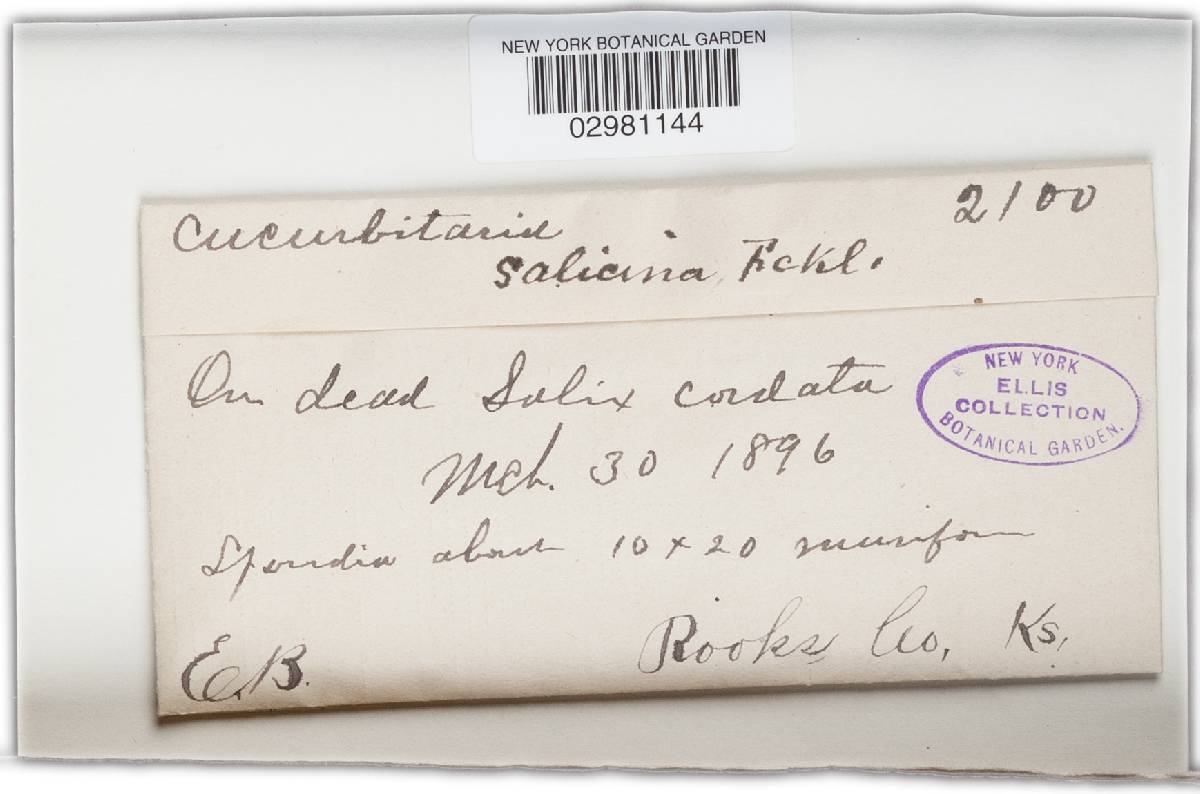 NEW YORK BOTANICAL GARDEN
02981144
2100
Cucurbitaria
salicina Fckl.
On dead Salix cordata
Mch. 30 1896
Sporidia about 10 x 20 muriform
E.B. Rooks Co, Ks,
NEW YORK
ELLIS
COLLECTION
BOTANICAL GARDEN.